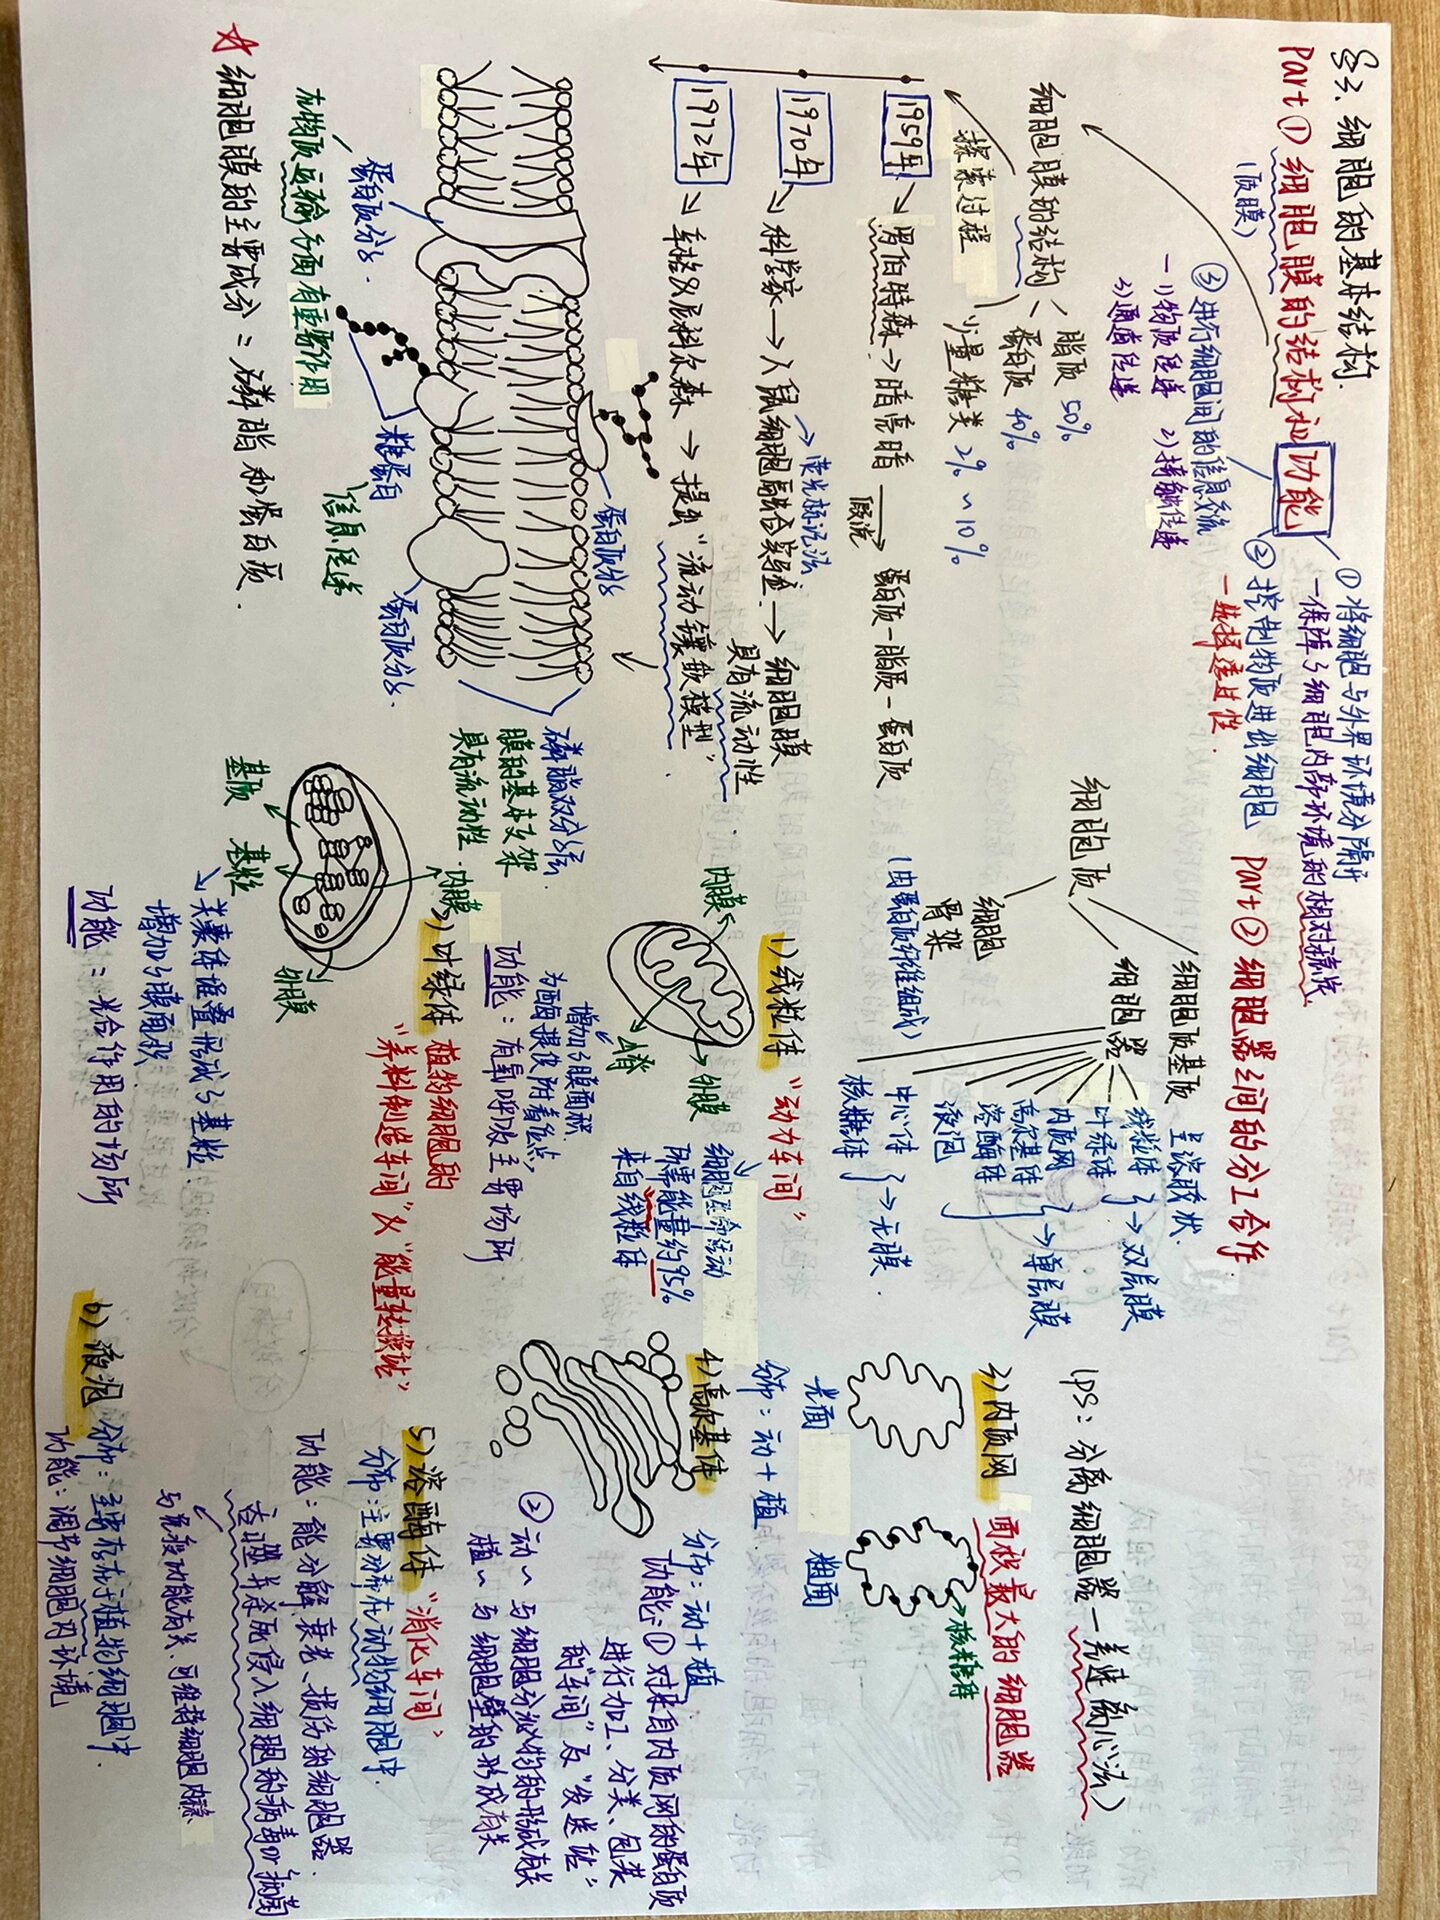 §3、细胞的基本结构.
Part① 细胞膜的结构和功能
(质膜)
①将细胞与外界环境分隔开
—保障了细胞内部环境的相对稳定
②控制物质进出细胞
—选择透过性.
③进行细胞间的信息交流
—1)物质传递 2)接触传递
3)通道传递
细胞膜的结构
脂质 50%
蛋白质 40%
少量糖类 2%~10%
探索过程
1959年 → 罗伯特森→暗亮暗 —假说→ 蛋白质-脂质-蛋白质
1970年 → 科学家→人鼠细胞融合实验.→细胞膜具有流动性
→荧光标记法
1972年 → 辛格及尼科尔森 → 提出“流动镶嵌模型”.
蛋白质分子
磷脂双分子层.
膜的基本支架
具有流动性.
蛋白质分子.
在物质运输方面有重要作用
糖蛋白
信息传递
蛋白质分子.
☆ 细胞膜的主要成分:磷脂和蛋白质.
Part② 细胞器之间的分工合作.
细胞质
细胞质基质 呈溶胶状.
细胞器
线粒体
叶绿体 }→双层膜
内质网
高尔基体
溶酶体
液泡 }→单层膜
中心体
核糖体 }→无膜.
细胞骨架
(由蛋白质纤维组成)
(ps:分离细胞器—差速离心法)
1)线粒体 “动力车间”
内膜
外膜
嵴
增加了膜面积.
为酶提供附着位点
细胞生命活动
所需能量约95%
来自线粒体
功能:有氧呼吸主要场所
2)叶绿体 植物细胞的
“养料制造车间”及“能量转换站”
内膜
外膜
基质
基粒
→类囊体堆叠形成了基粒.
增加了膜面积
功能:光合作用的场所
3)内质网 面积最大的细胞器
光面
粗面
核糖体
分布:动+植
4)高尔基体
分布:动+植
功能:①对来自内质网的蛋白质
进行加工、分类、包装
的“车间”及“发送站”
②动~与细胞分泌物的形成有关
植~与细胞壁的形成有关
5)溶酶体 “消化车间”
分布:主要分布在动物细胞中.
功能:能分解衰老、损伤的细胞器.
吞噬并杀死侵入细胞的病毒or病菌
与免疫功能有关.可维持细胞内稳
6)液泡 分布:主要存在于植物细胞中.
功能:调节细胞内环境